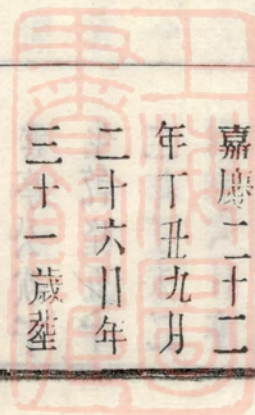 嘉慶二十二
年丁丑九月
二十六日年
三十一歲塟